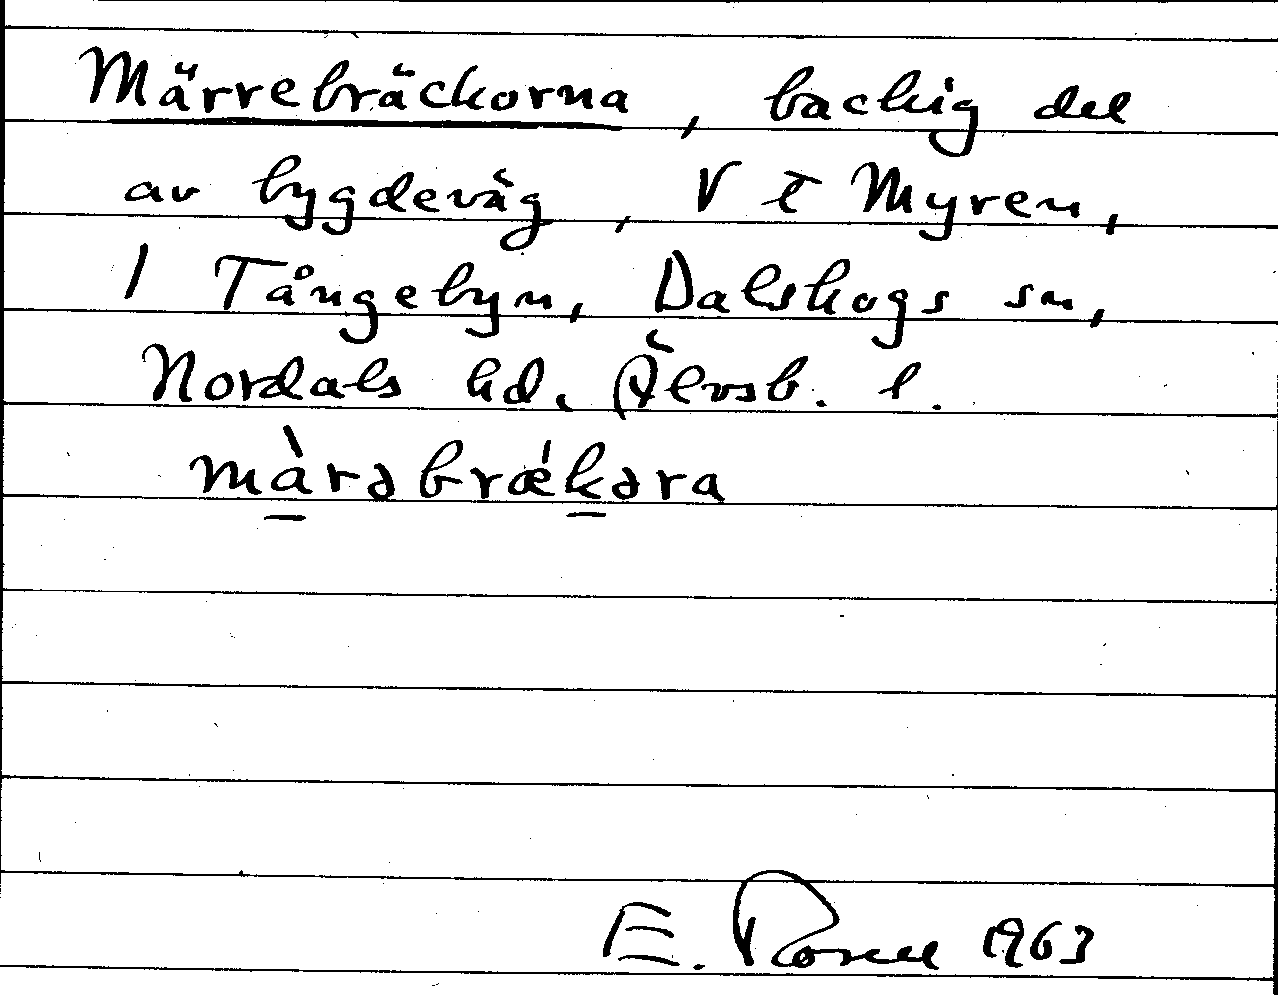 Märrebräckorna, backig del
av bygdeväg, V t Myren,
1 Tångebyn, Dalskogs sn,
Nordals hd. Älvsb. l.
màrəbrǽkəra
E. Rosell 1963